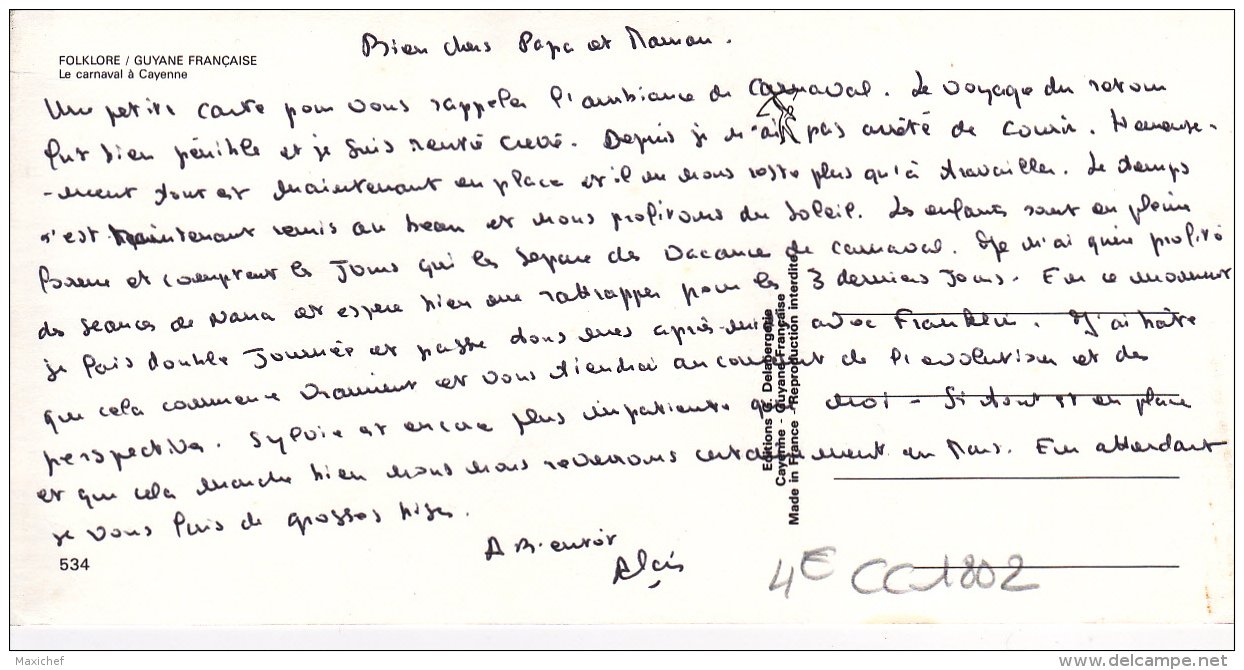 Bien chers Papa et Maman.
FOLKLORE / GUYANE FRANÇAISE
Le carnaval à Cayenne
Une petite carte pour vous rappeler l'ambiance du carnaval. Le voyage du retour
fut bien pénible et je suis rentré crevé. Depuis je n'ai pas arrêté de courir. Heureuse-
-ment tout est maintenant en place et il ne nous reste plus qu'à travailler. Le temps
s'est maintenant remis au beau et nous profitons du soleil. Les enfants sont en pleine
forme et comptent les jours qui les sépare des vacances de carnaval. Je n'ai guère profité
des séances de Nana et espère bien me rattrapper pour les 3 derniers jours. En ce moment
je fais double journée et passe tous mes après-midi avec Franklin. J'ai hâte
que cela commence vraiment et vous tiendrai au courant de l'évolution et des
perspectives. Sylvie est encore plus impatiente que moi - Si tout est en place
et que cela marche bien nous nous reverrons certainement en Mars. En attendant
je vous fais de grosses bises.
A Bientôt
Alain
534
Editions G. Delabergerie
Cayenne - Guyane Française
Made in France - Reproduction interdite
4E CC1802
Maxichef
www.delcampe.net